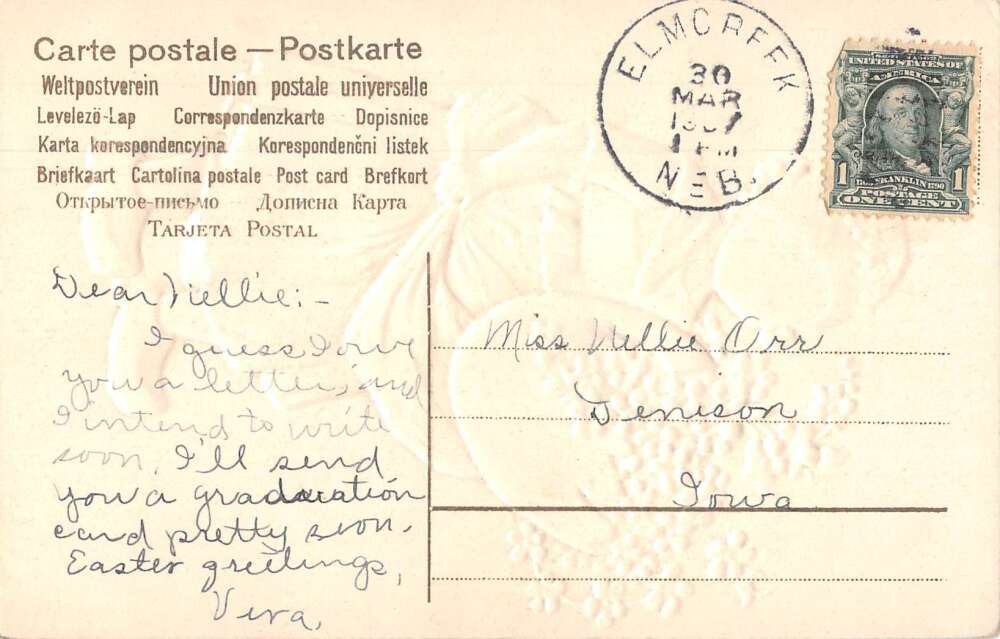 Carte postale — Postkarte
Weltpostverein Union postale universelle
Levelező-Lap Correspondenzkarte Dopisnice
Karta korespondencyjna Korespondenční listek
Briefkaart Cartolina postale Post card Brefkort
Открытое-письмо Дописна Карта
TARJETA POSTAL
ELMCREEK
30
MAR
1907
1 PM
NEB.
UNITED STATES OF
AMERICA
1706 FRANKLIN 1790
1 POSTAGE 1
ONE CENT
Dear Nellie:-
I guess I owe
you a letter, and
I intend to write
soon. I'll send
you a graduation
card pretty soon.
Easter greetings,
Vera.
Miss Nellie Orr
Denison
Iowa